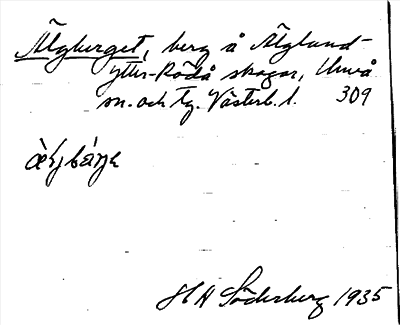 Älgberget, berg å Älgland-
ytter-Rödå skogar, Umeå
sn. och tg. Västerb. l. 309
H A Söderberg 1935